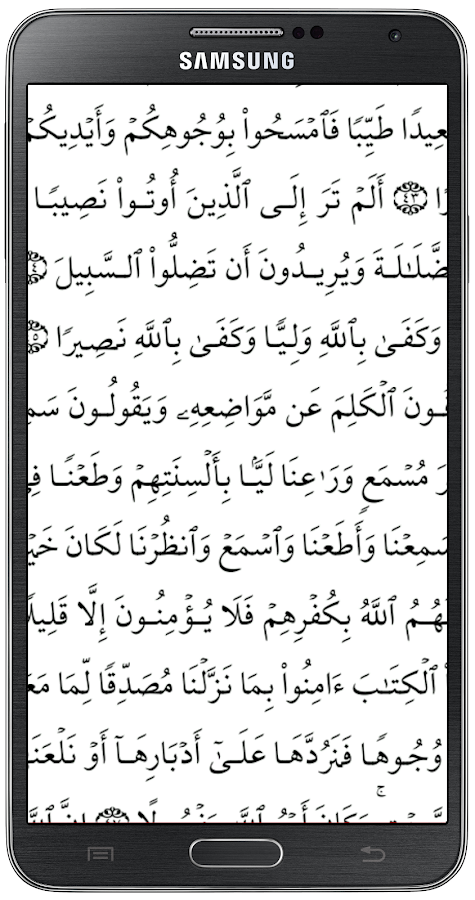 SAMSUNG
عِيدًا طَيِّبًا فَٱمْسَحُوا۟ بِوُجُوهِكُمْ وَأَيْدِيكُمْ
رًا ٤٣ أَلَمْ تَرَ إِلَى ٱلَّذِينَ أُوتُوا۟ نَصِيبًا
ضَّلَـٰلَةَ وَيُرِيدُونَ أَن تَضِلُّوا۟ ٱلسَّبِيلَ
وَكَفَىٰ بِٱللَّهِ وَلِيًّا وَكَفَىٰ بِٱللَّهِ نَصِيرًا
ونَ ٱلْكَلِمَ عَن مَّوَاضِعِهِۦ وَيَقُولُونَ سَمِ
رَ مُسْمَعٍ وَرَٰعِنَا لَيًّۢا بِأَلْسِنَتِهِمْ وَطَعْنًا فِى
سَمِعْنَا وَأَطَعْنَا وَٱسْمَعْ وَٱنظُرْنَا لَكَانَ خَيْ
هُمُ ٱللَّهُ بِكُفْرِهِمْ فَلَا يُؤْمِنُونَ إِلَّا قَلِيلًا
ٱلْكِتَـٰبَ ءَامِنُوا۟ بِمَا نَزَّلْنَا مُصَدِّقًا لِّمَا مَعَ
وُجُوهًا فَنَرُدَّهَا عَلَىٰٓ أَدْبَارِهَآ أَوْ نَلْعَنَ